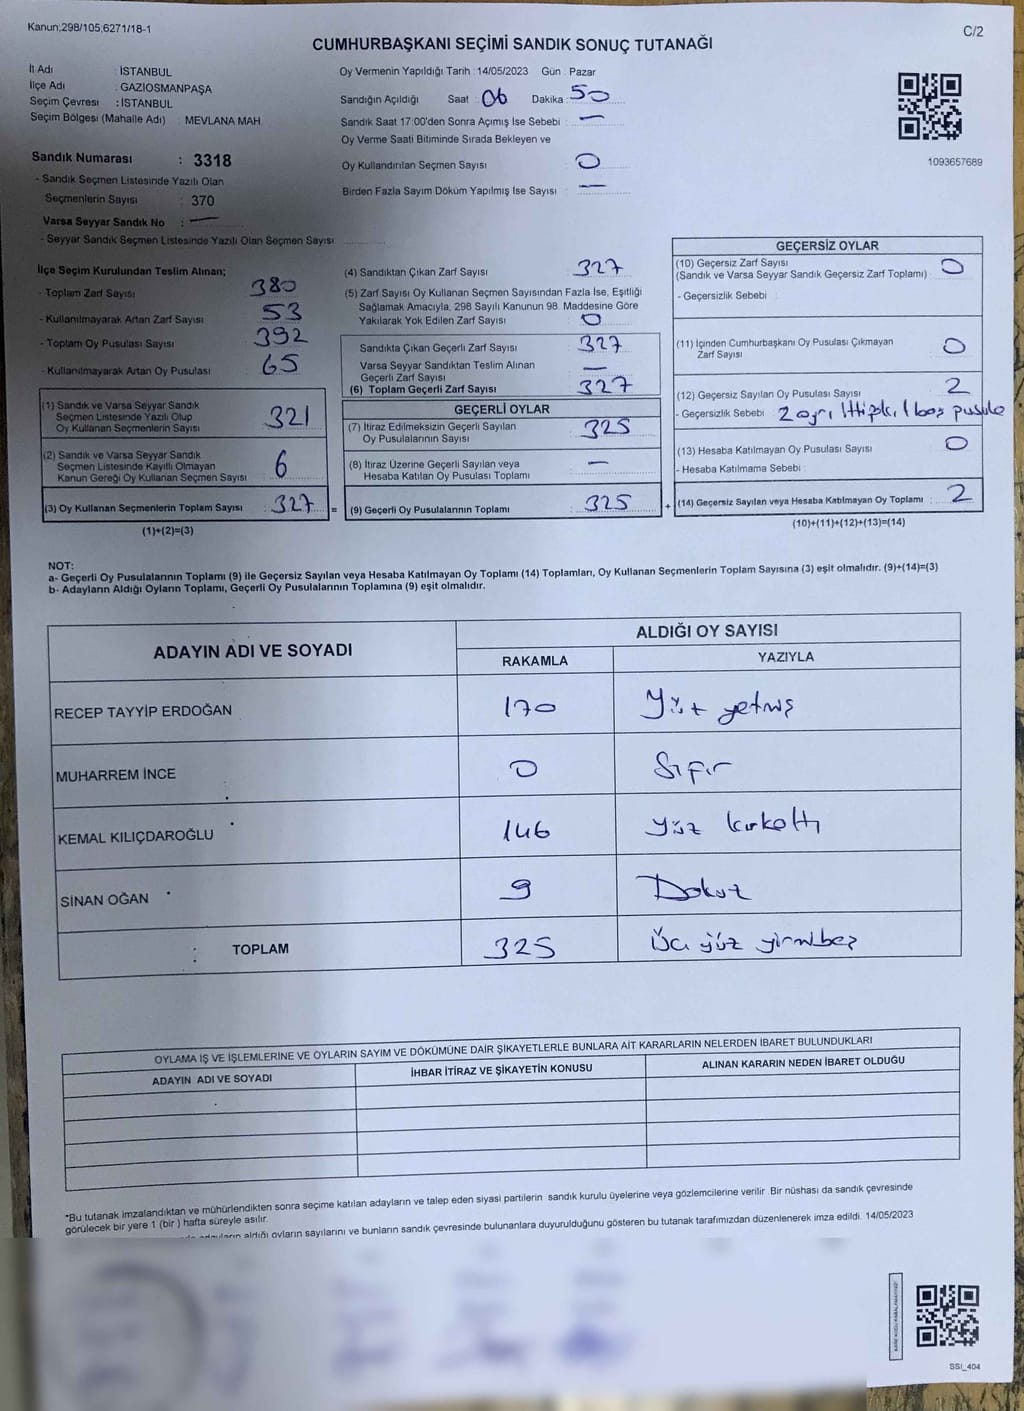 Kanun;298/105,6271/18-1
C/2
CUMHURBAŞKANI SEÇİMİ SANDIK SONUÇ TUTANAĞI
İl Adı : İSTANBUL
İlçe Adı : GAZİOSMANPAŞA
Seçim Çevresi : İSTANBUL
Seçim Bölgesi (Mahalle Adı) : MEVLANA MAH.
Sandık Numarası : 3318
- Sandık Seçmen Listesinde Yazılı Olan
Seçmenlerin Sayısı : 370
Varsa Seyyar Sandık No : —
- Seyyar Sandık Seçmen Listesinde Yazılı Olan Seçmen Sayısı
Oy Vermenin Yapıldığı Tarih : 14/05/2023 Gün : Pazar
Sandığın Açıldığı Saat : 06 Dakika : 50
Sandık Saat 17:00'den Sonra Açımış İse Sebebi : —
Oy Verme Saati Bitiminde Sırada Bekleyen ve
Oy Kullandırılan Seçmen Sayısı : 0
Birden Fazla Sayım Döküm Yapılmış İse Sayısı : —
1093657689
İlçe Seçim Kurulundan Teslim Alınan;
- Toplam Zarf Sayısı : 380
- Kullanılmayarak Artan Zarf Sayısı : 53
- Toplam Oy Pusulası Sayısı : 392
- Kullanılmayarak Artan Oy Pusulası : 65
(1) Sandık ve Varsa Seyyar Sandık
Seçmen Listesinde Yazılı Olup
Oy Kullanan Seçmenlerin Sayısı : 321
(2) Sandık ve Varsa Seyyar Sandık
Seçmen Listesinde Kayıtlı Olmayan
Kanun Gereği Oy Kullanan Seçmen Sayısı : 6
(3) Oy Kullanan Seçmenlerin Toplam Sayısı : 327 =
(1)+(2)=(3)
(4) Sandıktan Çıkan Zarf Sayısı : 327
(5) Zarf Sayısı Oy Kullanan Seçmen Sayısından Fazla İse, Eşitliği
Sağlamak Amacıyla, 298 Sayılı Kanunun 98. Maddesine Göre
Yakılarak Yok Edilen Zarf Sayısı : 0
Sandıkta Çıkan Geçerli Zarf Sayısı : 327
Varsa Seyyar Sandıktan Teslim Alınan
Geçerli Zarf Sayısı : —
(6) Toplam Geçerli Zarf Sayısı : 327
GEÇERLİ OYLAR
(7) İtiraz Edilmeksizin Geçerli Sayılan
Oy Pusulalarının Sayısı : 325
(8) İtiraz Üzerine Geçerli Sayılan veya
Hesaba Katılan Oy Pusulası Toplamı : —
(9) Geçerli Oy Pusulalarının Toplamı : 325 +
GEÇERSİZ OYLAR
(10) Geçersiz Zarf Sayısı
(Sandık ve Varsa Seyyar Sandık Geçersiz Zarf Toplamı) : 0
- Geçersizlik Sebebi :
(11) İçinden Cumhurbaşkanı Oy Pusulası Çıkmayan
Zarf Sayısı : 0
(12) Geçersiz Sayılan Oy Pusulası Sayısı : 2
- Geçersizlik Sebebi : 2 ayrı ittifak, 1 boş pusula
(13) Hesaba Katılmayan Oy Pusulası Sayısı : 0
- Hesaba Katılmama Sebebi :
(14) Geçersiz Sayılan veya Hesaba Katılmayan Oy Toplamı : 2
(10)+(11)+(12)+(13)=(14)
NOT:
a- Geçerli Oy Pusulalarının Toplamı (9) ile Geçersiz Sayılan veya Hesaba Katılmayan Oy Toplamı (14) Toplamları, Oy Kullanan Seçmenlerin Toplam Sayısına (3) eşit olmalıdır. (9)+(14)=(3)
b- Adayların Aldığı Oyların Toplamı, Geçerli Oy Pusulalarının Toplamına (9) eşit olmalıdır.
ADAYIN ADI VE SOYADI ALDIĞI OY SAYISI
RAKAMLA YAZIYLA
RECEP TAYYİP ERDOĞAN 170 Yüz yetmiş
MUHARREM İNCE 0 Sıfır
KEMAL KILIÇDAROĞLU 146 yüz kırkaltı
SİNAN OĞAN 9 Dokuz
TOPLAM 325 Üç yüz yirmibeş
OYLAMA İŞ VE İŞLEMLERİNE VE OYLARIN SAYIM VE DÖKÜMÜNE DAİR ŞİKAYETLERLE BUNLARA AİT KARARLARIN NELERDEN İBARET BULUNDUKLARI
ADAYIN ADI VE SOYADI İHBAR İTİRAZ VE ŞİKAYETİN KONUSU ALINAN KARARIN NEDEN İBARET OLDUĞU
*Bu tutanak imzalandıktan ve mühürlendikten sonra seçime katılan adayların ve talep eden siyasi partilerin sandık kurulu üyelerine veya gözlemcilerine verilir. Bir nüshası da sandık çevresinde
görülecek bir yere 1 (bir ) hafta süreyle asılır.
aldığı oyların sayılarını ve bunların sandık çevresinde bulunanlara duyurulduğunu gösteren bu tutanak tarafımızdan düzenlenerek imza edildi. 14/05/2023
SSI_404